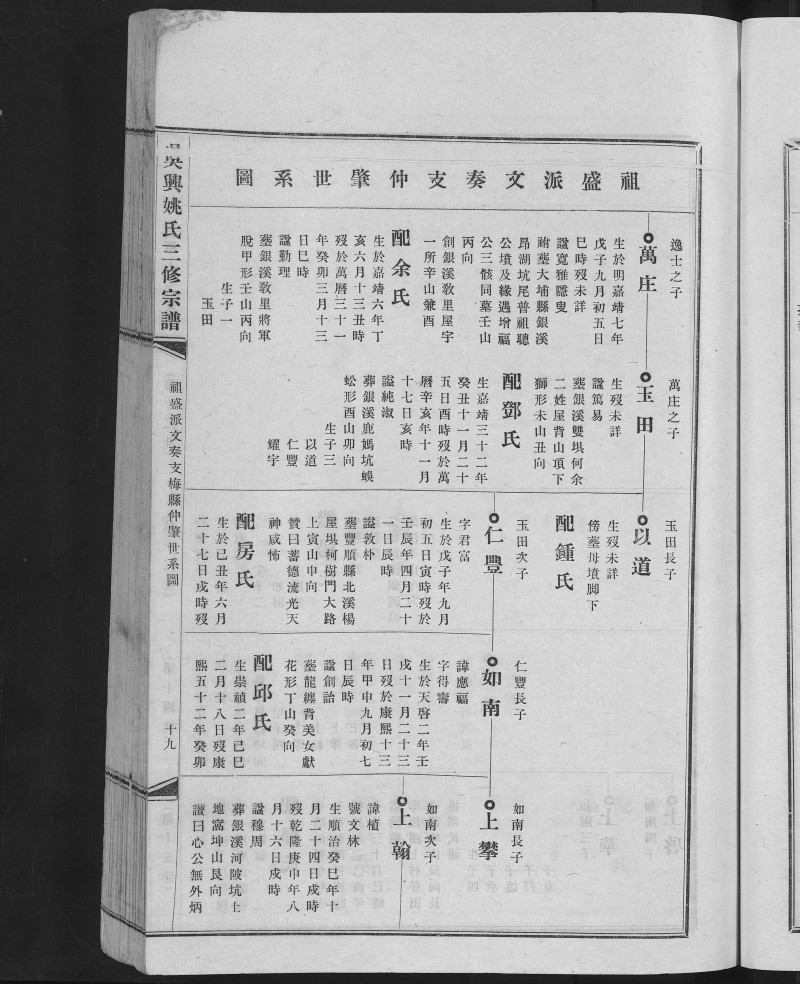 祖盛派文奏支仲肇世系圖
逸士之子
萬庄
生於明嘉靖七年
戊子九月初五日
巳時歿未詳
諡寬雅隱叟
祔塟大埔縣銀溪
昂湖坑尾普祖聰
公墳及緣遇增福
公三骸同墓壬山
丙向
創銀溪敎里屋宇
一所辛山兼酉
配余氏
生於嘉靖六年丁
亥六月十三丑時
歿於萬曆三十一
年癸卯三月十三
日巳時
諡勤理
塟銀溪敎里將軍
脫甲形壬山丙向
生子一
玉田
萬庄之子
玉田
生歿未詳
諡篤易
塟銀溪雙垻何余
二姓屋背山頂下
獅形未山丑向
配鄧氏
生嘉靖三十二年
癸丑十一月二十
五日酉時歿於萬
曆辛亥年十一月
十七日亥時
諡純淑
葬銀溪鹿媽坑蜈
蚣形酉山卯向
生子三
以道
仁豐
耀宇
玉田長子
以道
生歿未詳
傍塟母墳脚下
配鍾氏
玉田次子
仁豐
字君富
生於戊子年九月
初五日寅時歿於
壬辰年四月二十
一日辰時
諡敦朴
塟豐順縣北溪楊
屋垻柯樹門大路
上寅山申向
贊曰蓄德流光天
神咸怖
配房氏
生於己丑年六月
二十七日戌時歿
仁豐長子
如南
諱應福
字得壽
生於天啓二年壬
戌十一月二十三
日歿於康熙十三
年甲申九月初七
日辰時
諡創詒
塟龍纏背美女獻
花形丁山癸向
配邱氏
生崇禎二年己巳
二月十八日歿康
熙五十二年癸卯
如南長子
上攀
如南次子
上翰
諱植
號文林
生順治癸巳年十
月二十四日戌時
歿乾隆庚申年八
月十六日戌時
諡穆周
葬銀溪河陂坑土
地窩坤山艮向
讚曰心公無外炳
吳興姚氏三修宗譜
祖盛派文奏支梅縣仲肇世系圖
十九